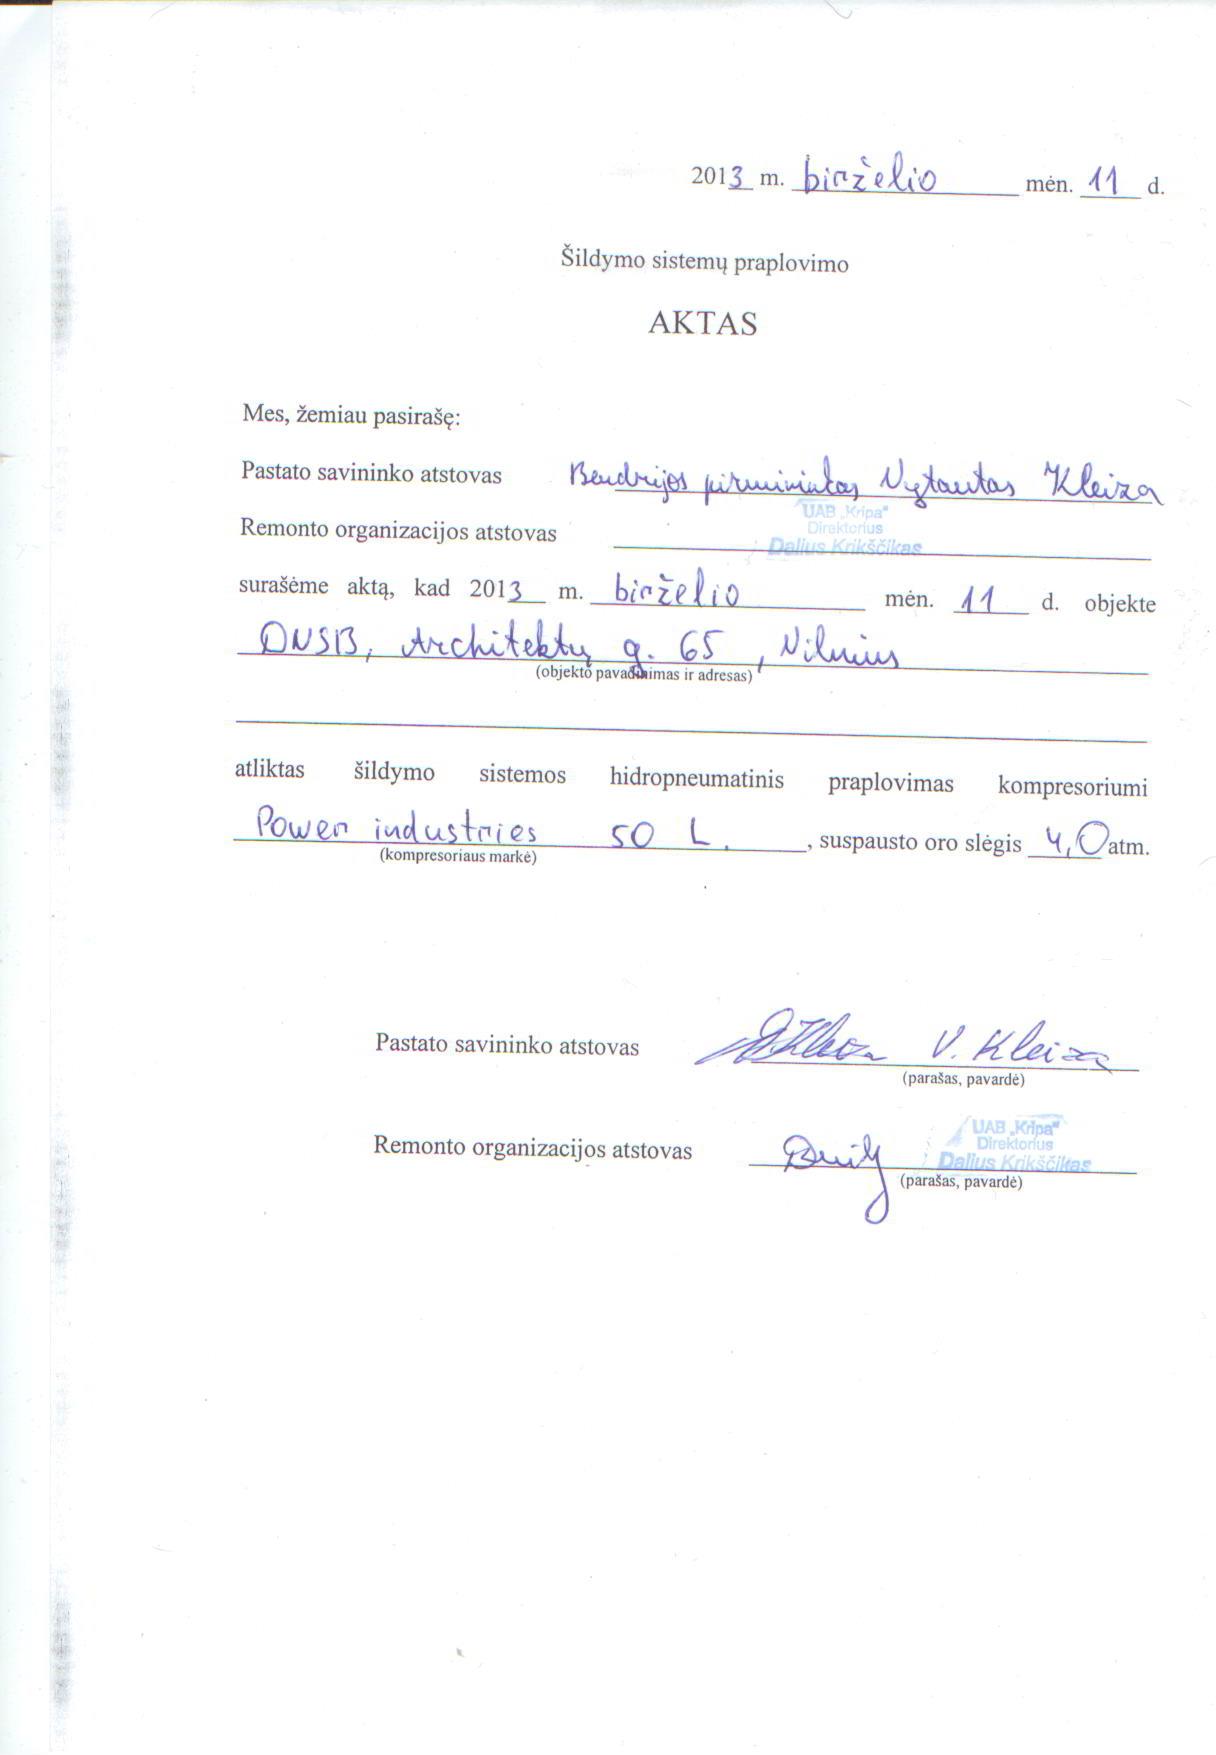 2013 m. birželio mėn. 11 d.
Šildymo sistemų praplovimo
AKTAS
Mes, žemiau pasirašę:
Pastato savininko atstovas Bendrijos pirmininkas Vytautas Kleiza
UAB „Kripa“
Direktorius
Remonto organizacijos atstovas Dalius Krikščikas
surašėme aktą, kad 2013 m. birželio mėn. 11 d. objekte
DNSB, Architektų g. 65, Vilnius
(objekto pavadinimas ir adresas)
atliktas šildymo sistemos hidropneumatinis praplovimas kompresoriumi
Power industries 50 L. , suspausto oro slėgis 4,0 atm.
(kompresoriaus markė)
Pastato savininko atstovas V. Kleiza
(parašas, pavardė)
UAB „Kripa“
Direktorius
Remonto organizacijos atstovas Dalius Krikščikas
(parašas, pavardė)